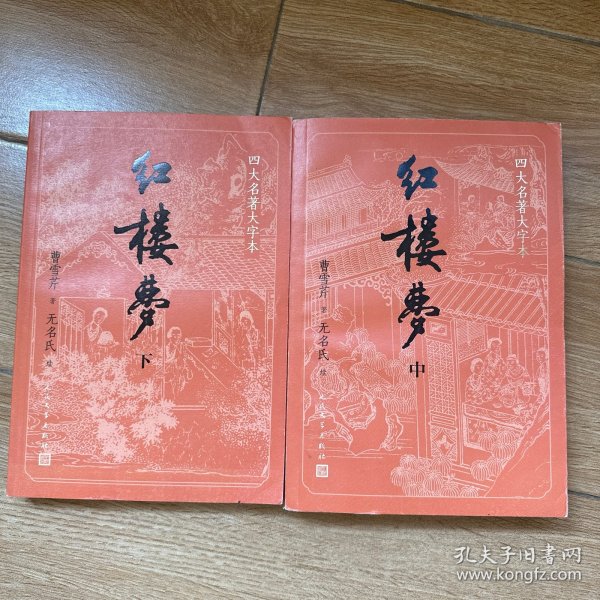 四大名著大字本
红楼梦
下
曹雪芹 著
无名氏 续
人民文学出版社
四大名著大字本
红楼梦
中
曹雪芹 著
无名氏 续
人民文学出版社
孔夫子旧书网
www.kongfz.com